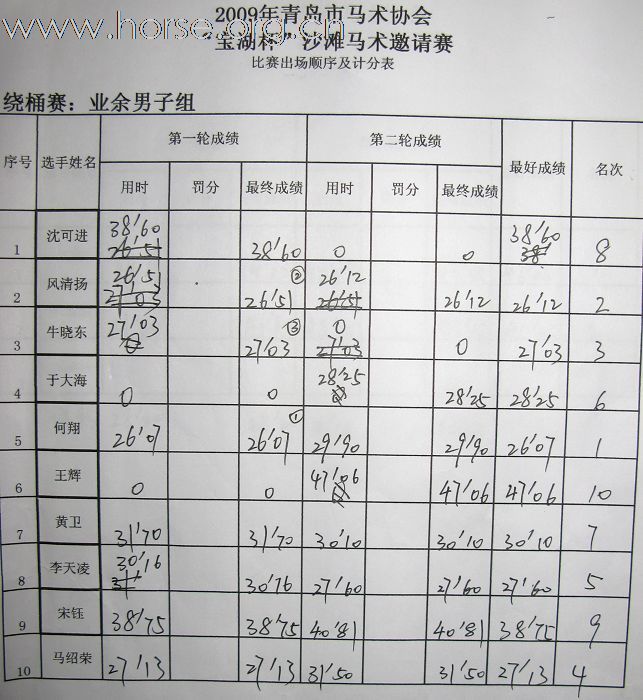 www.horse.org.cn
2009年青岛市马术协会
“宝湖杯”沙滩马术邀请赛
比赛出场顺序及计分表
绕桶赛：业余男子组
序号 选手姓名 第一轮成绩 第二轮成绩 最好成绩 名次
用时 罚分 最终成绩 用时 罚分 最终成绩
1 沈可进 38'60 26'51 38'60 0 0 38'60 38' 8
2 风清扬 26'51 27'03 ② 26'51 26'12 26'51 26'12 26'12 2
3 牛晓东 27'03 0 ③ 27'03 0 27'03 0 27'03 3
4 于大海 0 0 28'25 28'25 28'25 6
5 何翔 26'07 ① 26'07 29'90 29'90 26'07 1
6 王辉 0 0 47'06 47'06 47'06 10
7 黄卫 31'70 31'70 30'10 30'10 30'10 7
8 李天凌 30'16 31' 30'16 27'60 27'60 27'60 5
9 宋钰 38'75 38'75 40'81 40'81 38'75 9
10 马绍荣 27'13 27'13 31'50 31'50 27'13 4